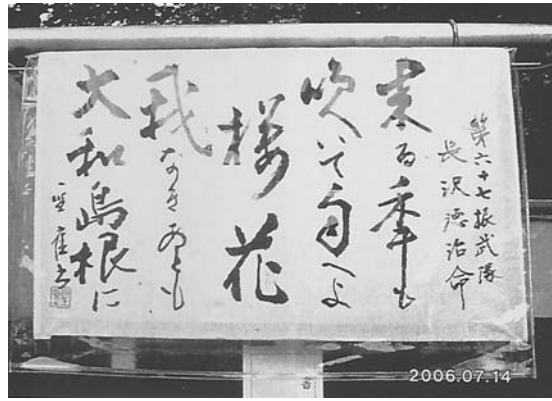 第六十七振武隊
長沢徳治命
来る年も
咲いて匂へよ
桜花
我なきあとも
大和島根に
2006.07.14